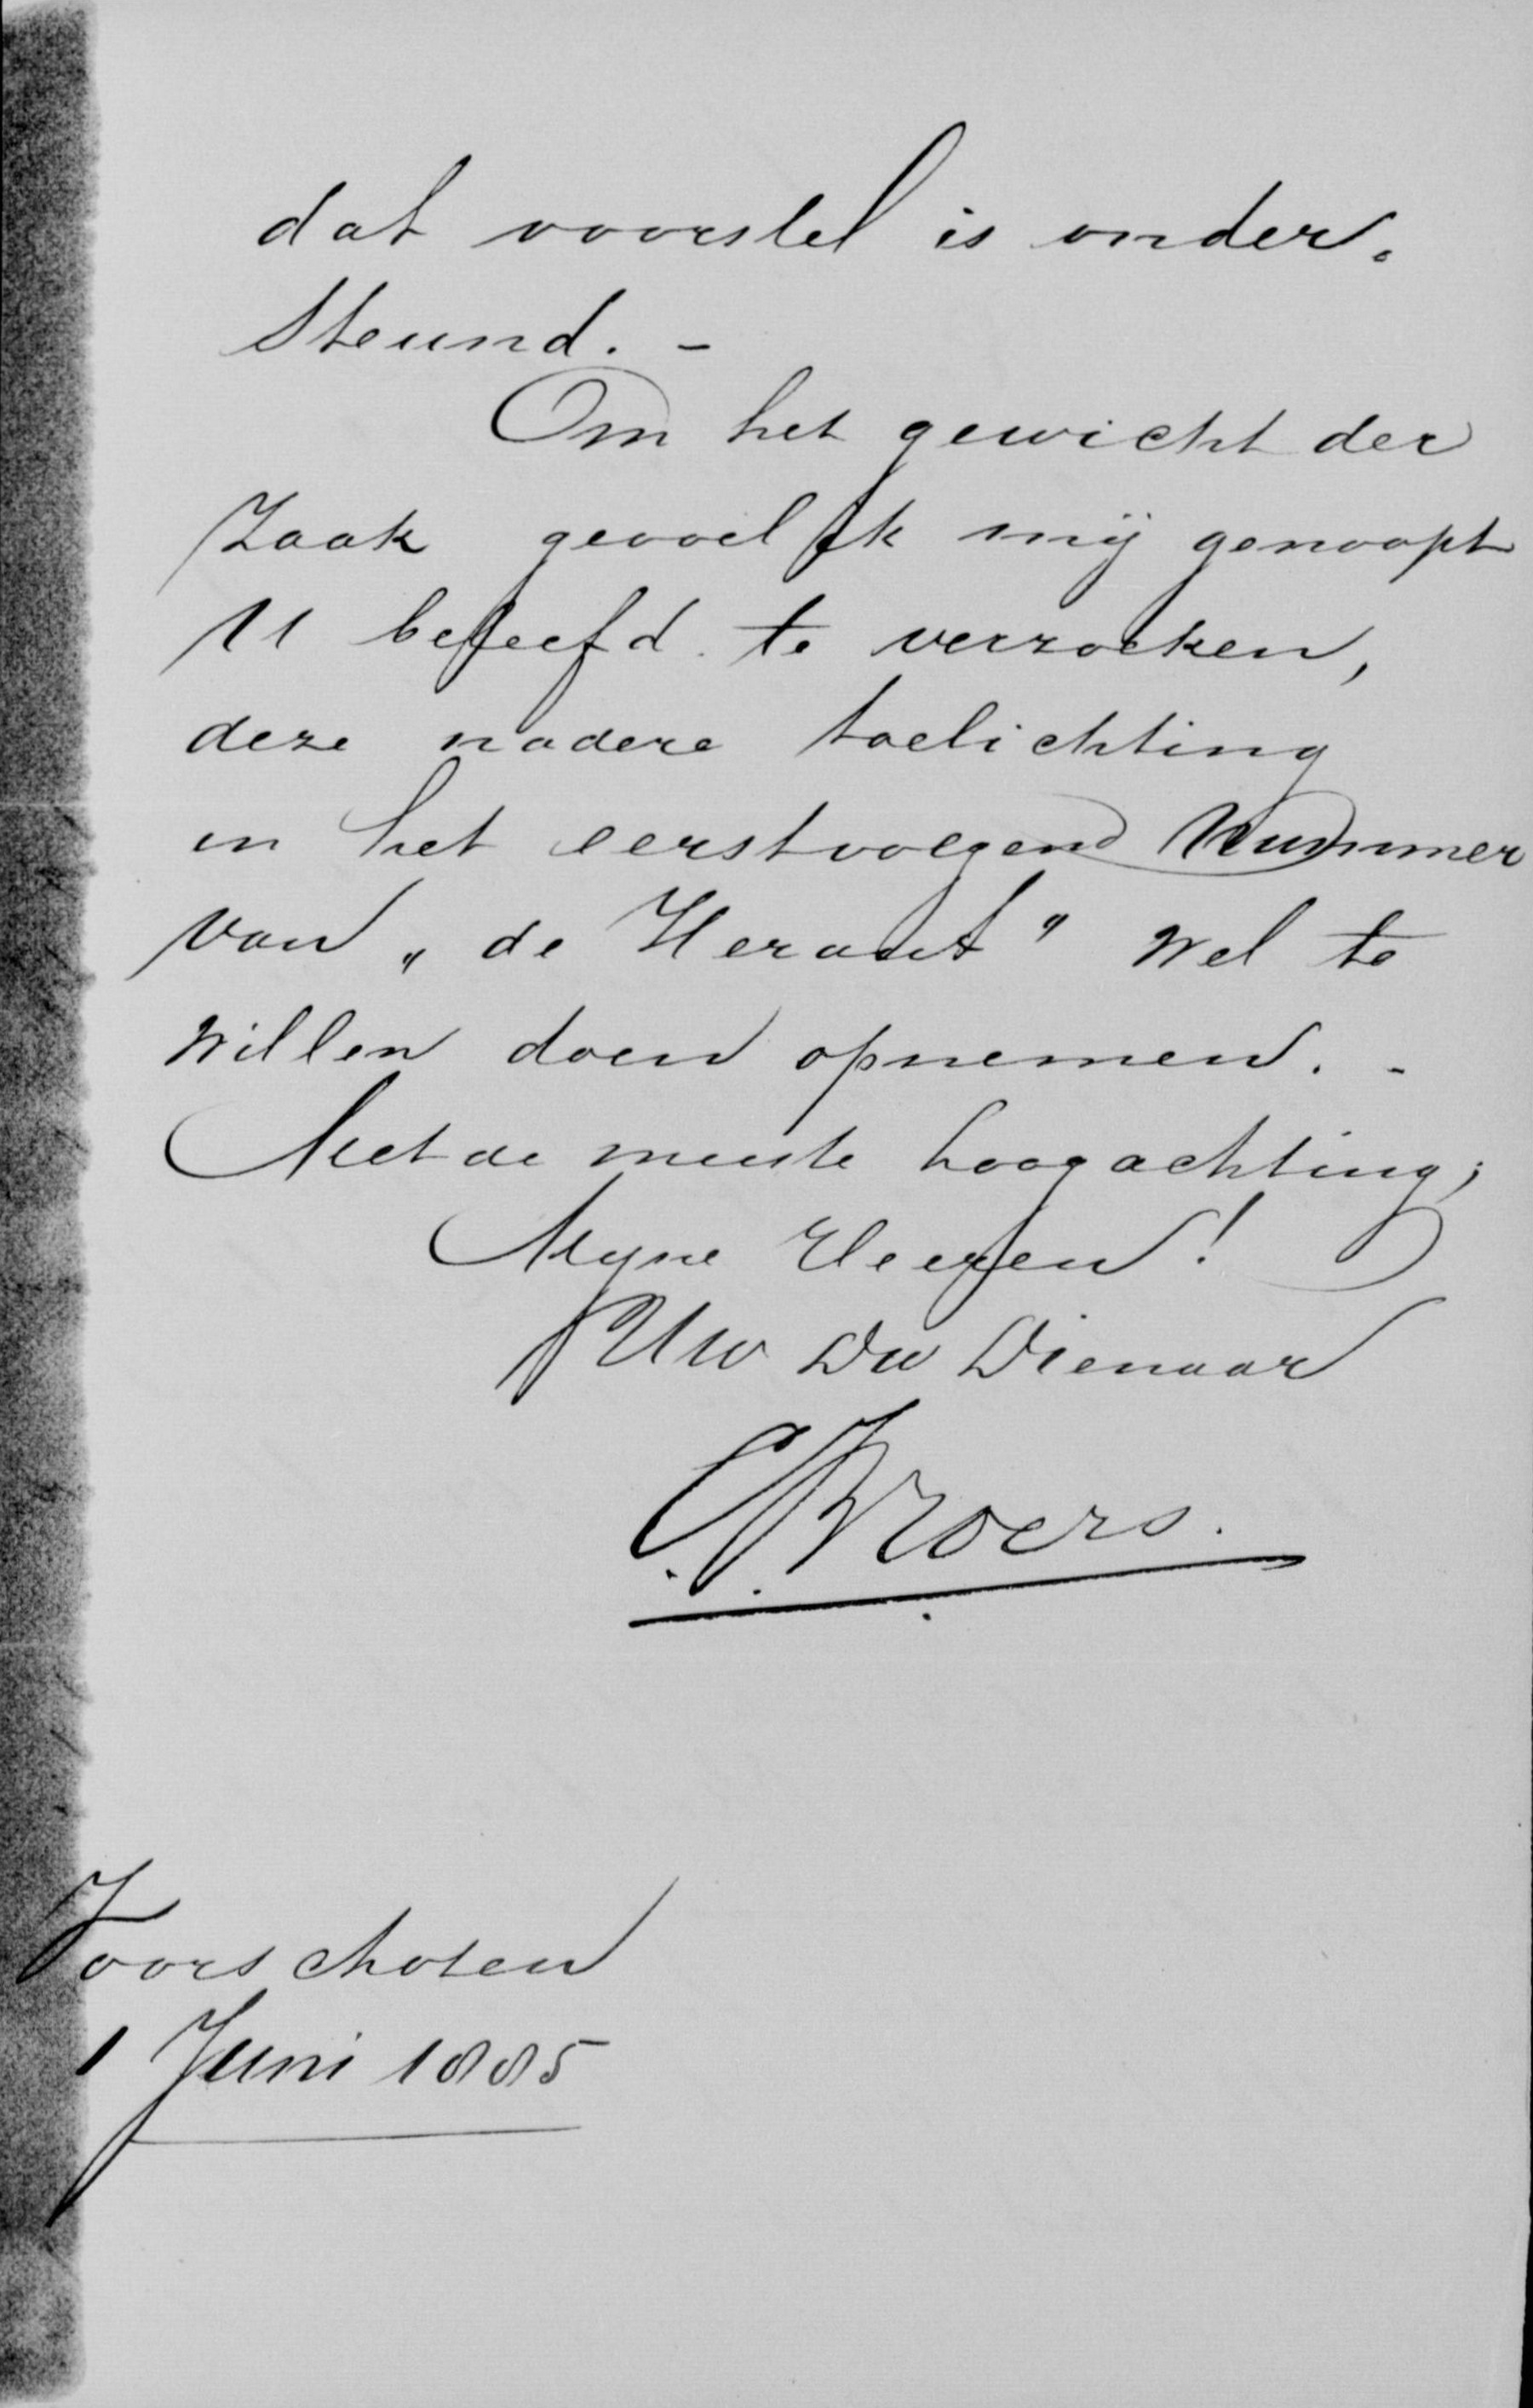 dat voorstel is onder-
steund. -
Om het gewicht der
zaak gevoel ik mij genoopt
U beleefd te verzoeken,
deze nadere toelichting
in het eerstvolgend Nummer
van „de Heraut" wel te
willen doen opnemen. -
Met de meeste hoogachting,
Myne Heeren!
Uw Dw Dienaar
C. Broers.
Voorschoten
1 Juni 1885